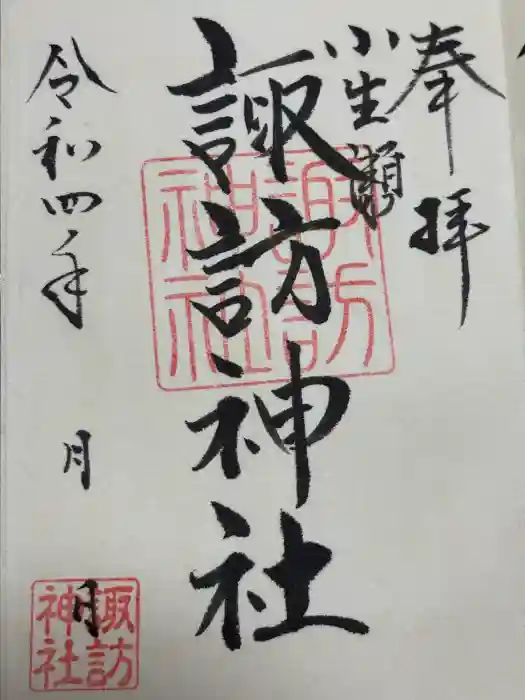 奉拝
小生瀬
諏訪神社
諏訪神社
令和四年
月
日
諏訪神社